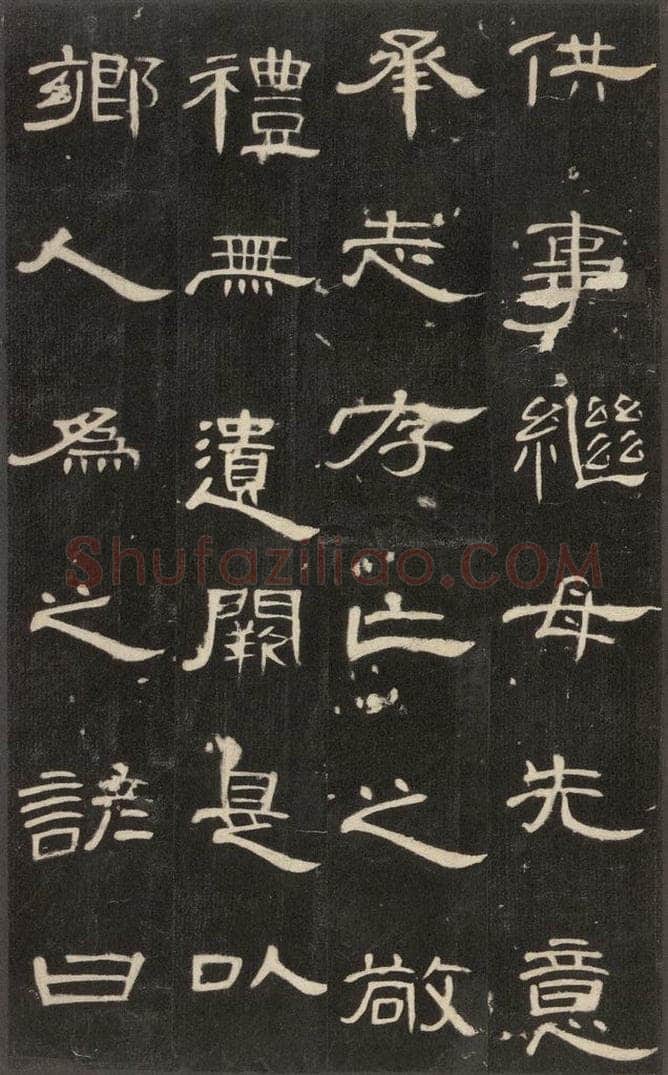 供事繼母先意
承志存亡之敬
禮無遺闕是以
鄉人為之諺曰
Shufaziliao.COM